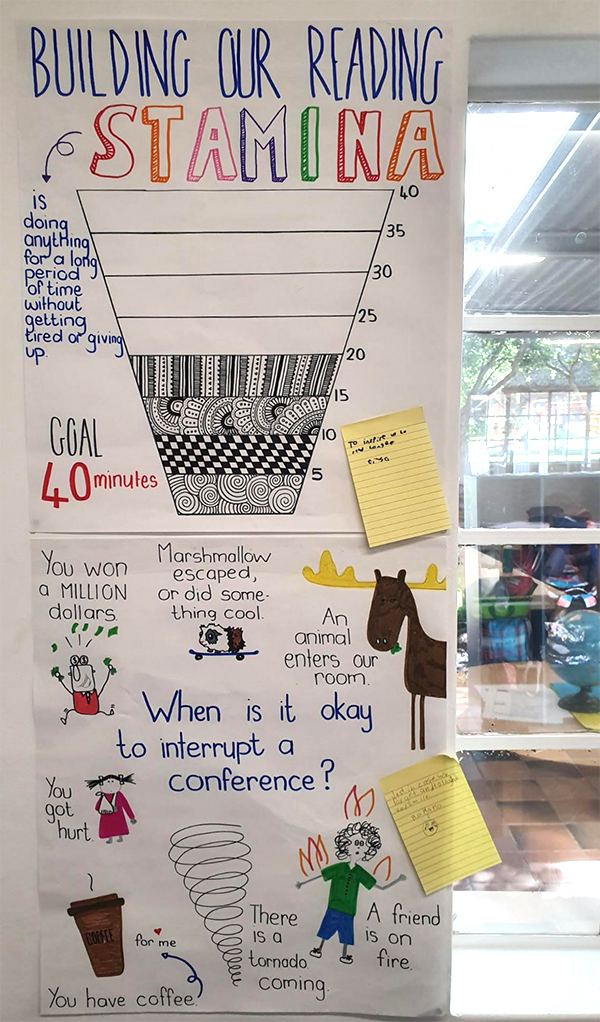 BUILDING OUR READING
STAMINA
is
doing
anything
for a long
period
of time
without
getting
tired or giving
up.
40
35
30
25
20
15
10
5
GOAL
40 minutes
To inspire
You won
a MILLION
dollars.
Marshmallow
escaped,
or did some-
thing cool.
An
animal
enters our
room.
When is it okay
to interrupt a
conference?
You
got
hurt.
COFFEE
for me
You have coffee.
There
is a
tornado
coming.
A friend
is on
fire.